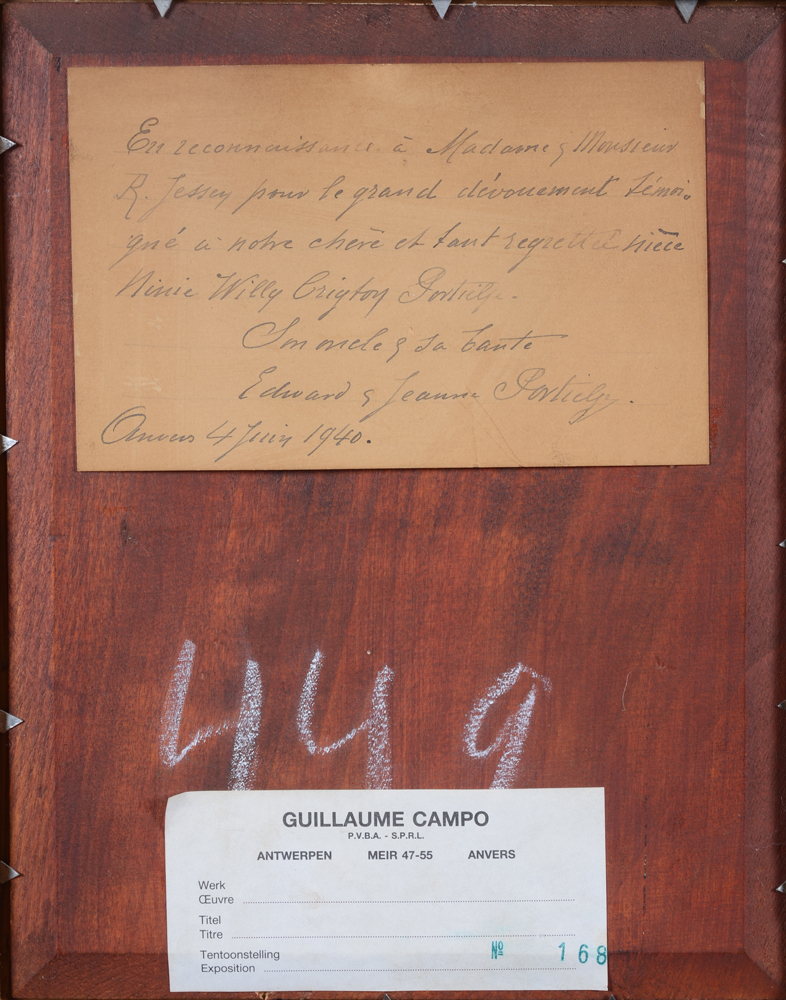 En reconnaissance à Madame & Monsieur
R. Jessey pour le grand dévouement témoi-
gné à notre chère et tant regrettée nièce
Ninie Willy Crigton Portielje.
Son oncle & sa tante
Edward & Jeanne Portielje.
Anvers 4 Juin 1940.
449
GUILLAUME CAMPO
P.V.B.A. - S.P.R.L.
ANTWERPEN MEIR 47-55 ANVERS
Werk
Œuvre
Titel
Titre
Tentoonstelling
Exposition
Nº 168